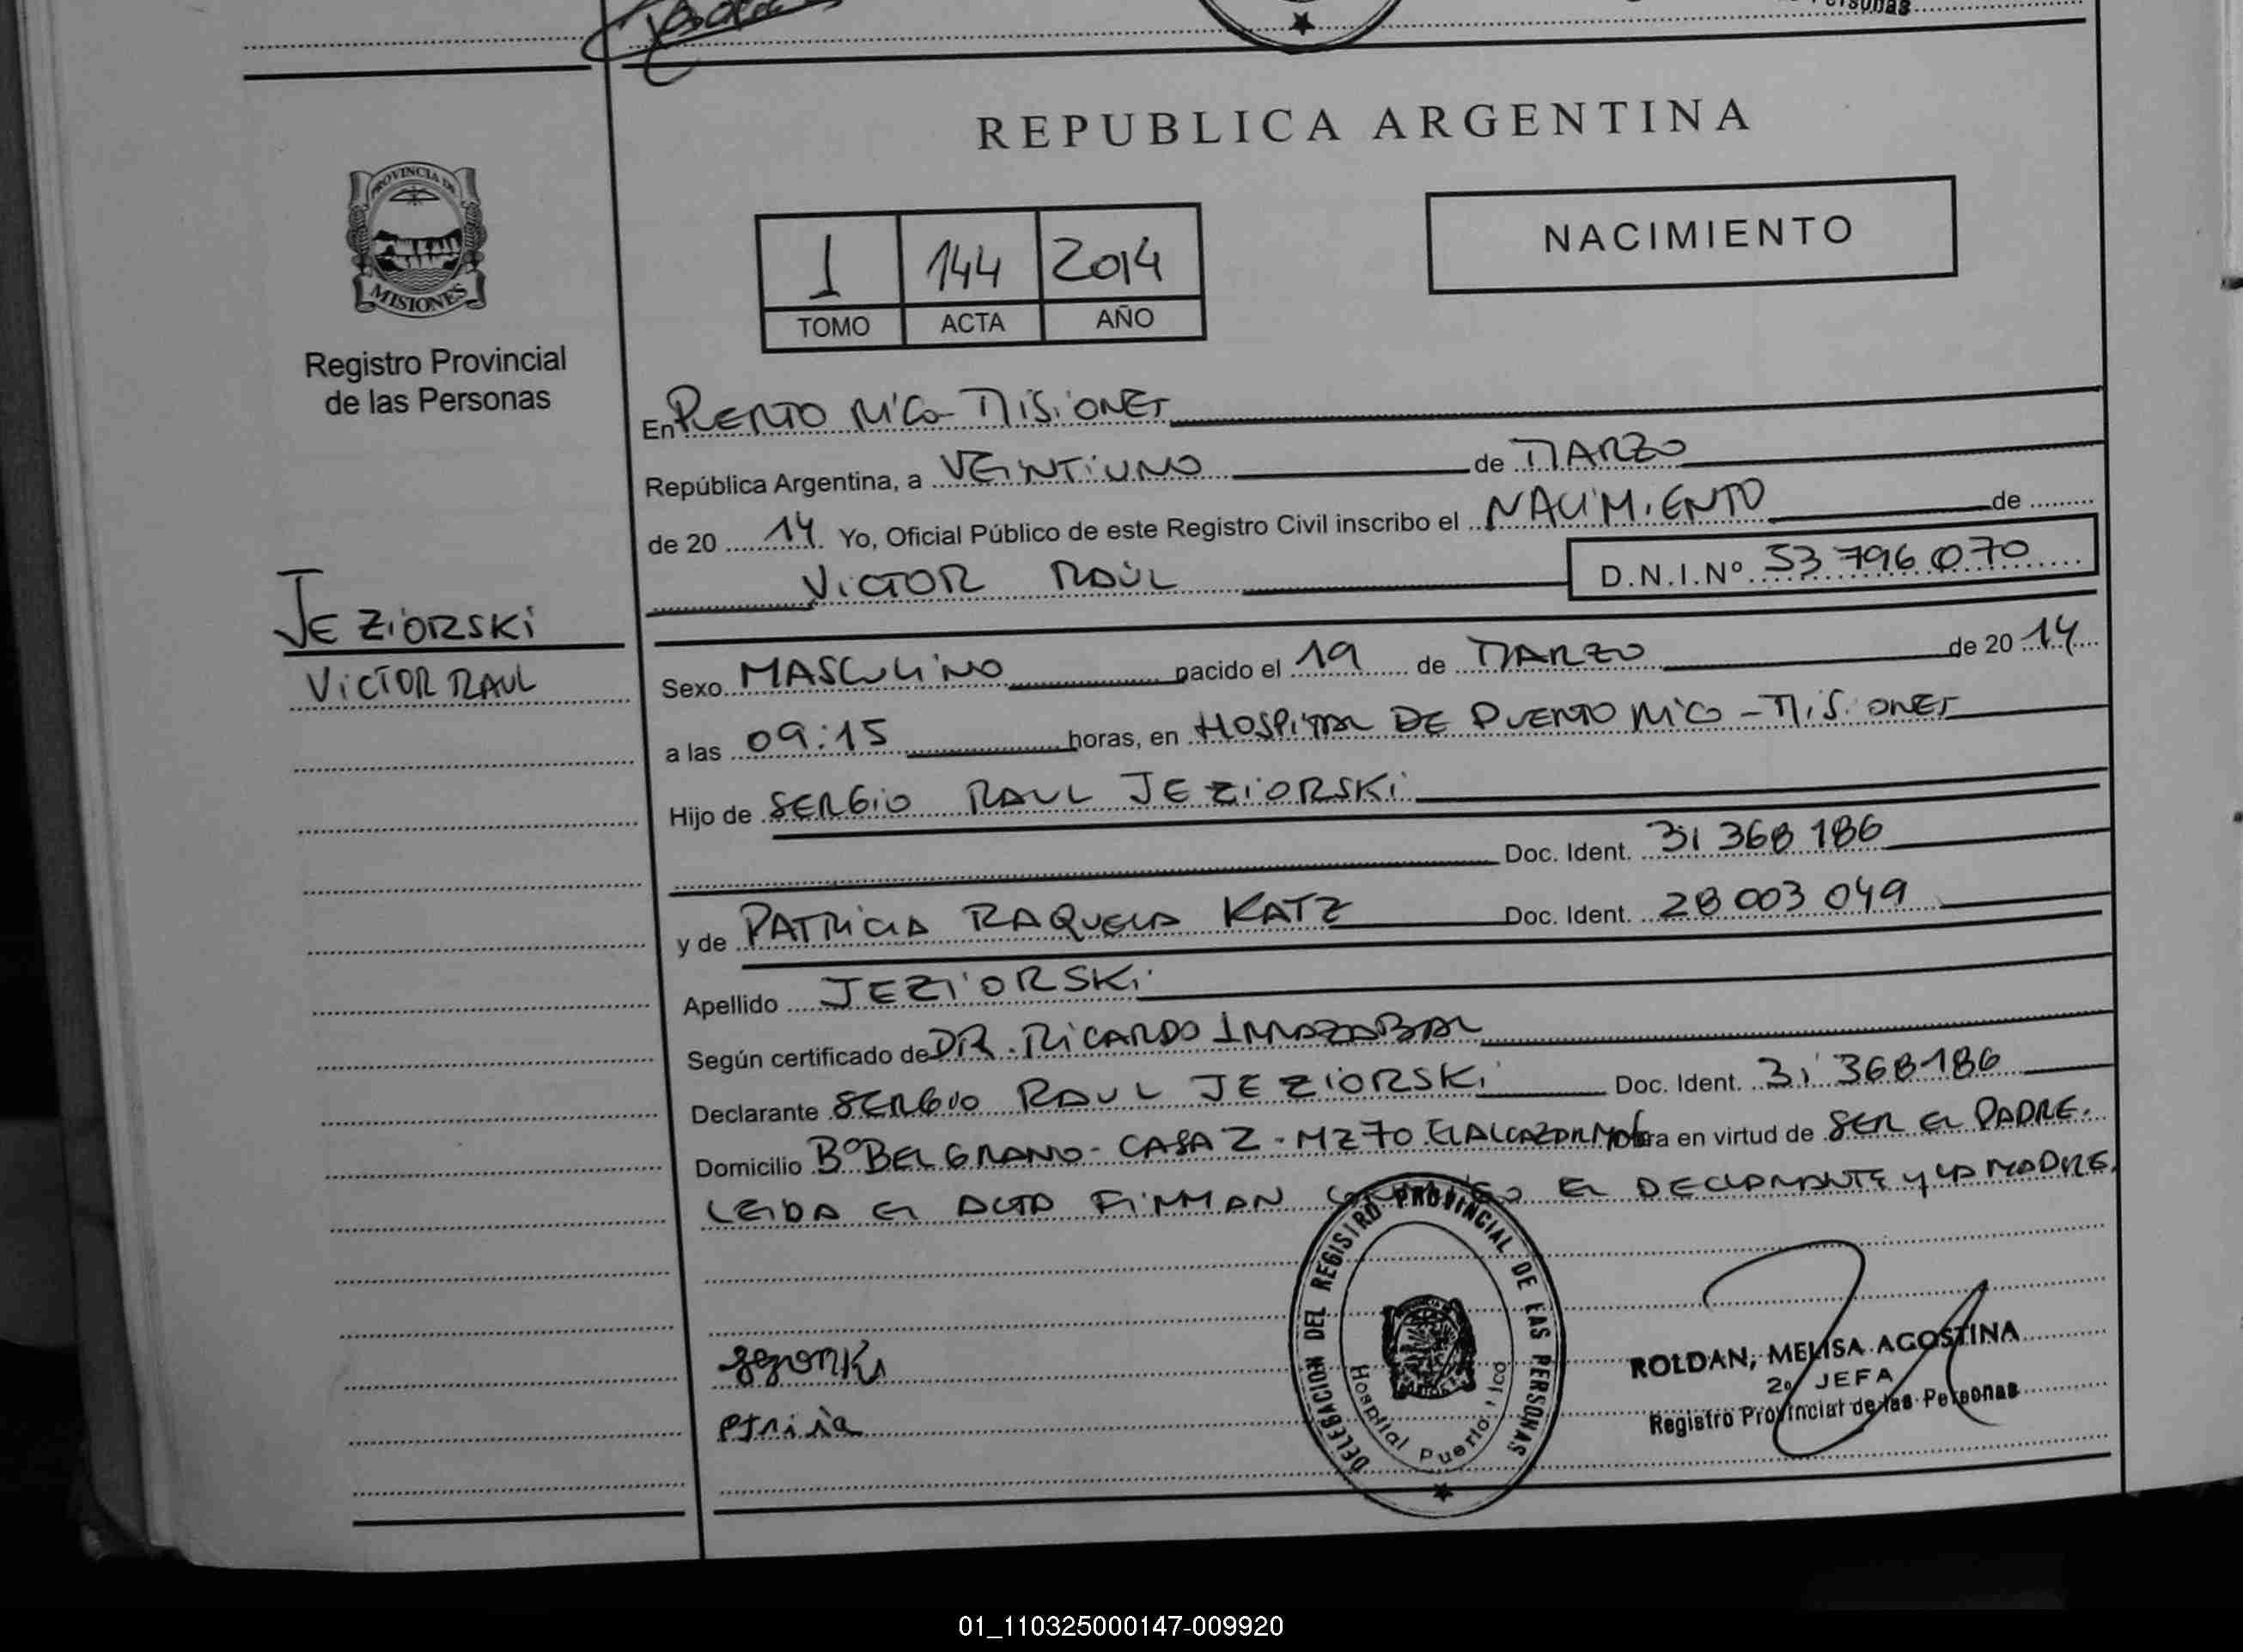 Personas
REPUBLICA ARGENTINA
PROVINCIA DE
MISIONES
Registro Provincial
de las Personas
1 144 2014
TOMO ACTA AÑO
NACIMIENTO
En PUERTO RICO - MISIONES
República Argentina, a VEINTIUNO de MARZO
de 20 14 Yo, Oficial Público de este Registro Civil inscribo el NACIMIENTO de
VICTOR RAÚL D.N.I.Nº 53 796 070
JEZIORSKI
VICTOR RAUL
Sexo MASCULINO nacido el 19 de MARZO de 20 14
a las 09:15 horas, en HOSPITAL DE PUERTO RICO - MISIONES
Hijo de SERGIO RAUL JEZIORSKI
Doc. Ident. 31 368 186
y de PATRICIA RAQUELA KATZ Doc. Ident. 28 003 049
Apellido JEZIORSKI
Según certificado de DR. RICARDO IRRAZABAL
Declarante SERGIO RAUL JEZIORSKI Doc. Ident. 31 368186
Domicilio Bº BELGRANO - CASA 2 - MZ 70 EL ALCAZAR Mnes obra en virtud de SER EL PADRE.
LEIDA EL ACTA FIRMAN EL DECLARANTE Y LA MADRE.
DELEGACION DEL REGISTRO PROVINCIAL DE LAS PERSONAS
Hospital Puerto Rico
ROLDAN, MELISA AGOSTINA
2º JEFA
Registro Provincial de las Personas
01_110325000147-009920